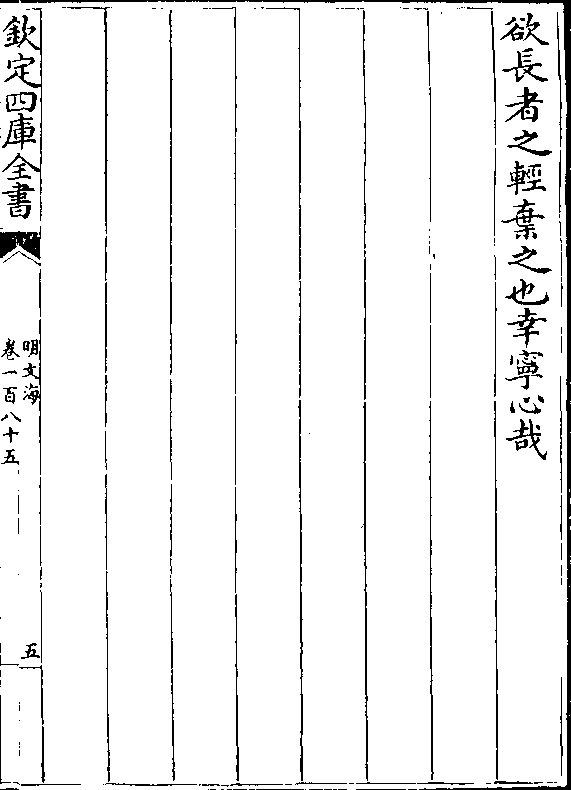 欲長者之輕棄之也幸寧心哉
欽定四庫全書
明文海
卷一百八十五
五